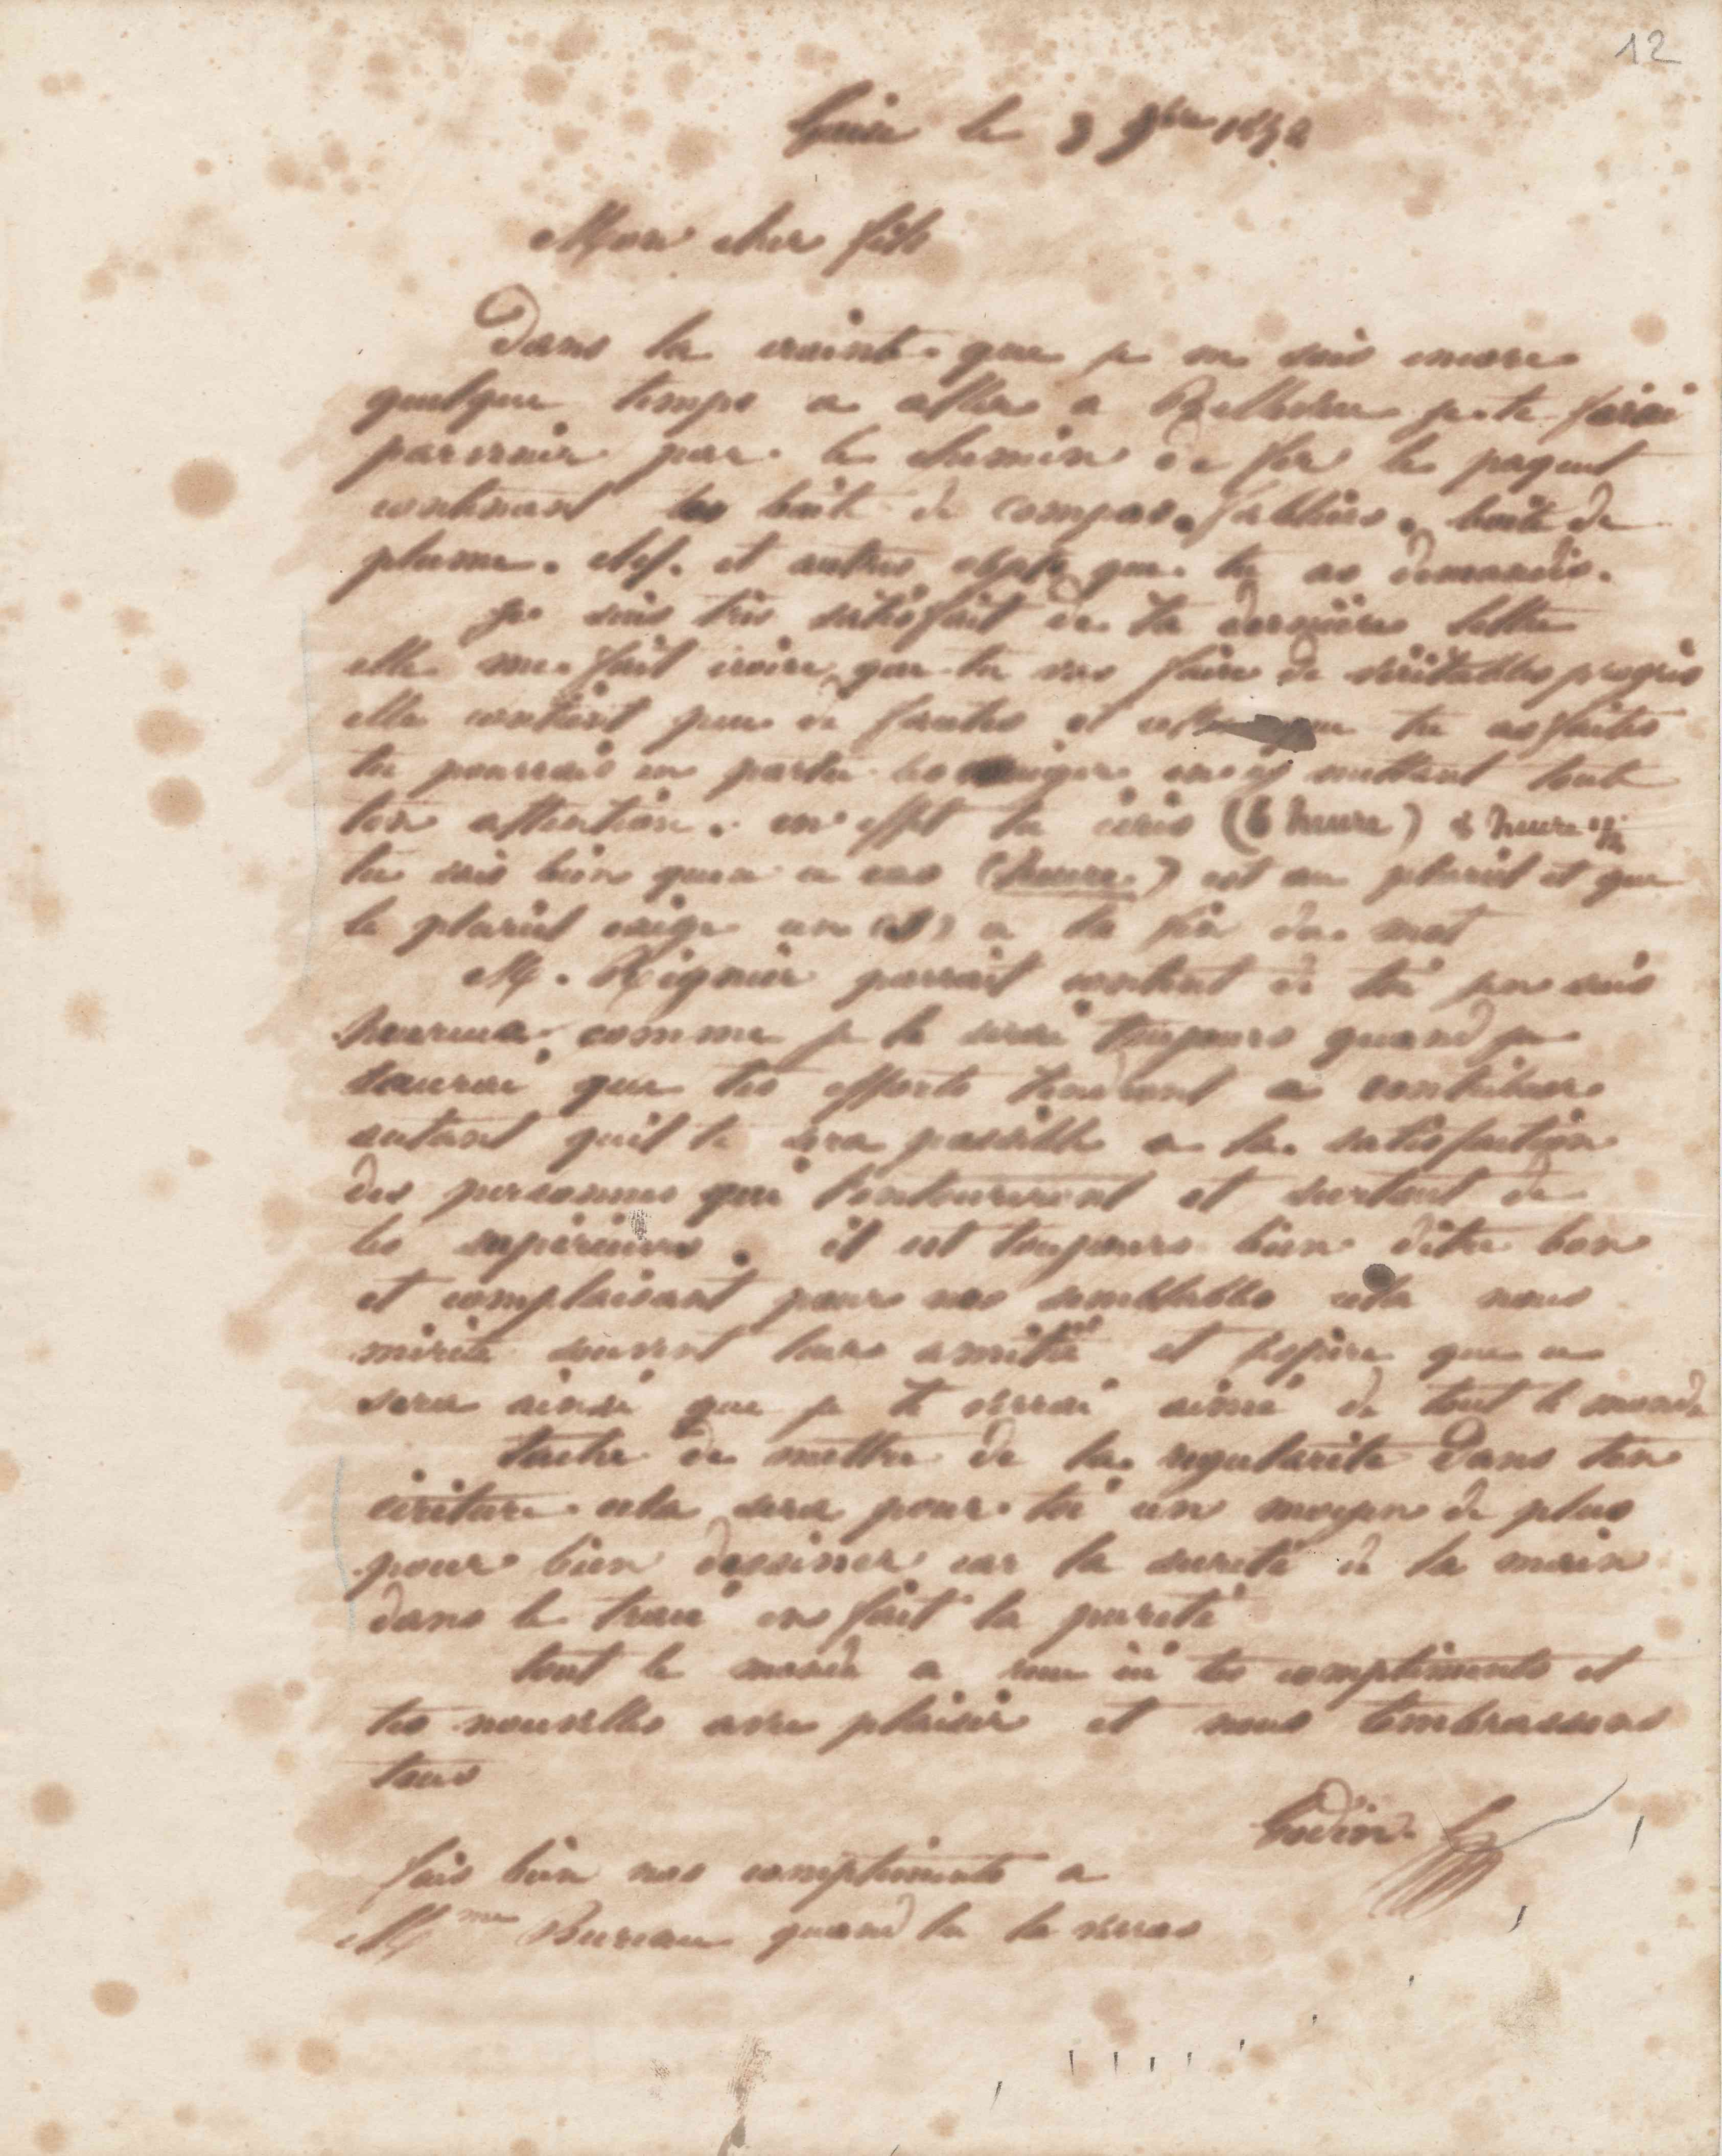 12
Guise le 3 9bre 1852
Mon cher fils
Dans la crainte que je ne sois encore
quelque temps a aller a je te ferai
parvenir par le chemin de fer le paquet
contenant boite de compas. tabliers. boite de
plume. clef. et autres objets que tu as demandés.
Je suis très satisfait de ta dernière lettre
elle me fait croire que tu vas faire de véritables progrès
elle contient peu de fautes et que tu as faites
tu pourrais en partie les en y mettant toute
ton attention. en effet tu écris (6 heure) 8 heure 1/2
tu sais bien que ce cas (heure) est au pluriel et que
le pluriel exige un (s) a la fin du mot
M. parrait content de toi j'en suis
heureux comme je le serai toujours quand je
saurai que tes efforts tendront a contribuer
autant qu'il te sera possible a la satisfaction
des personnes qui t'entoureront et surtout de
tes supérieurs. il est toujours bien d'être bon
et complaisant pour nos semblables cela nous
mérite souvent leurs amitié et j'espère que ce
sera ainsi que je te verrai aimé de tout le monde
tache de mettre de la regularité dans ton
écriture cela sera pour toi un moyen de plus
pour bien dessiner car la sureté de la main
dans le tracé en fait la pureté
tout le monde a recu ici tes compliments et
tes nouvelles avec plaisir et nous t'embrassons
tous
Godin
fais bien nos compliments a
Mme Bureau quand tu la verras